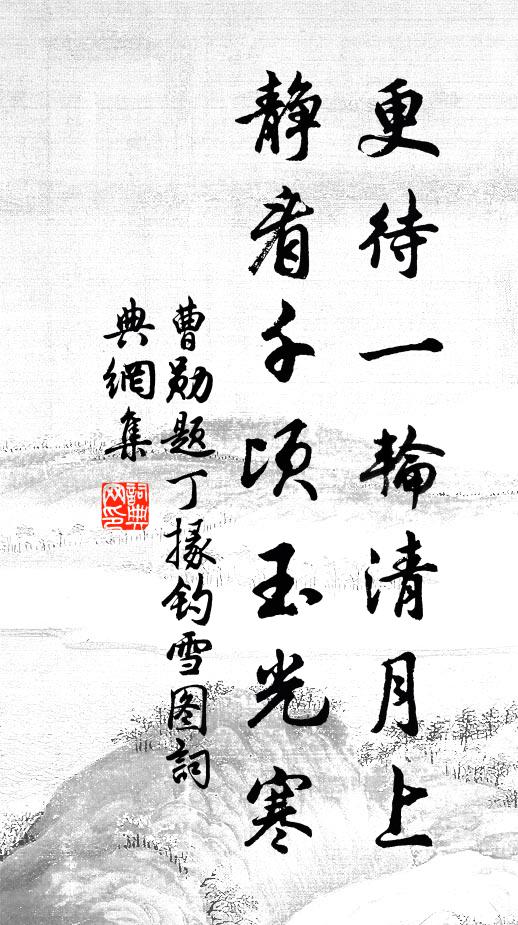 更待一輪清月上
静看千頃玉光寒
曹勛題丁掾釣雪图詞
典網集
詞典
网印